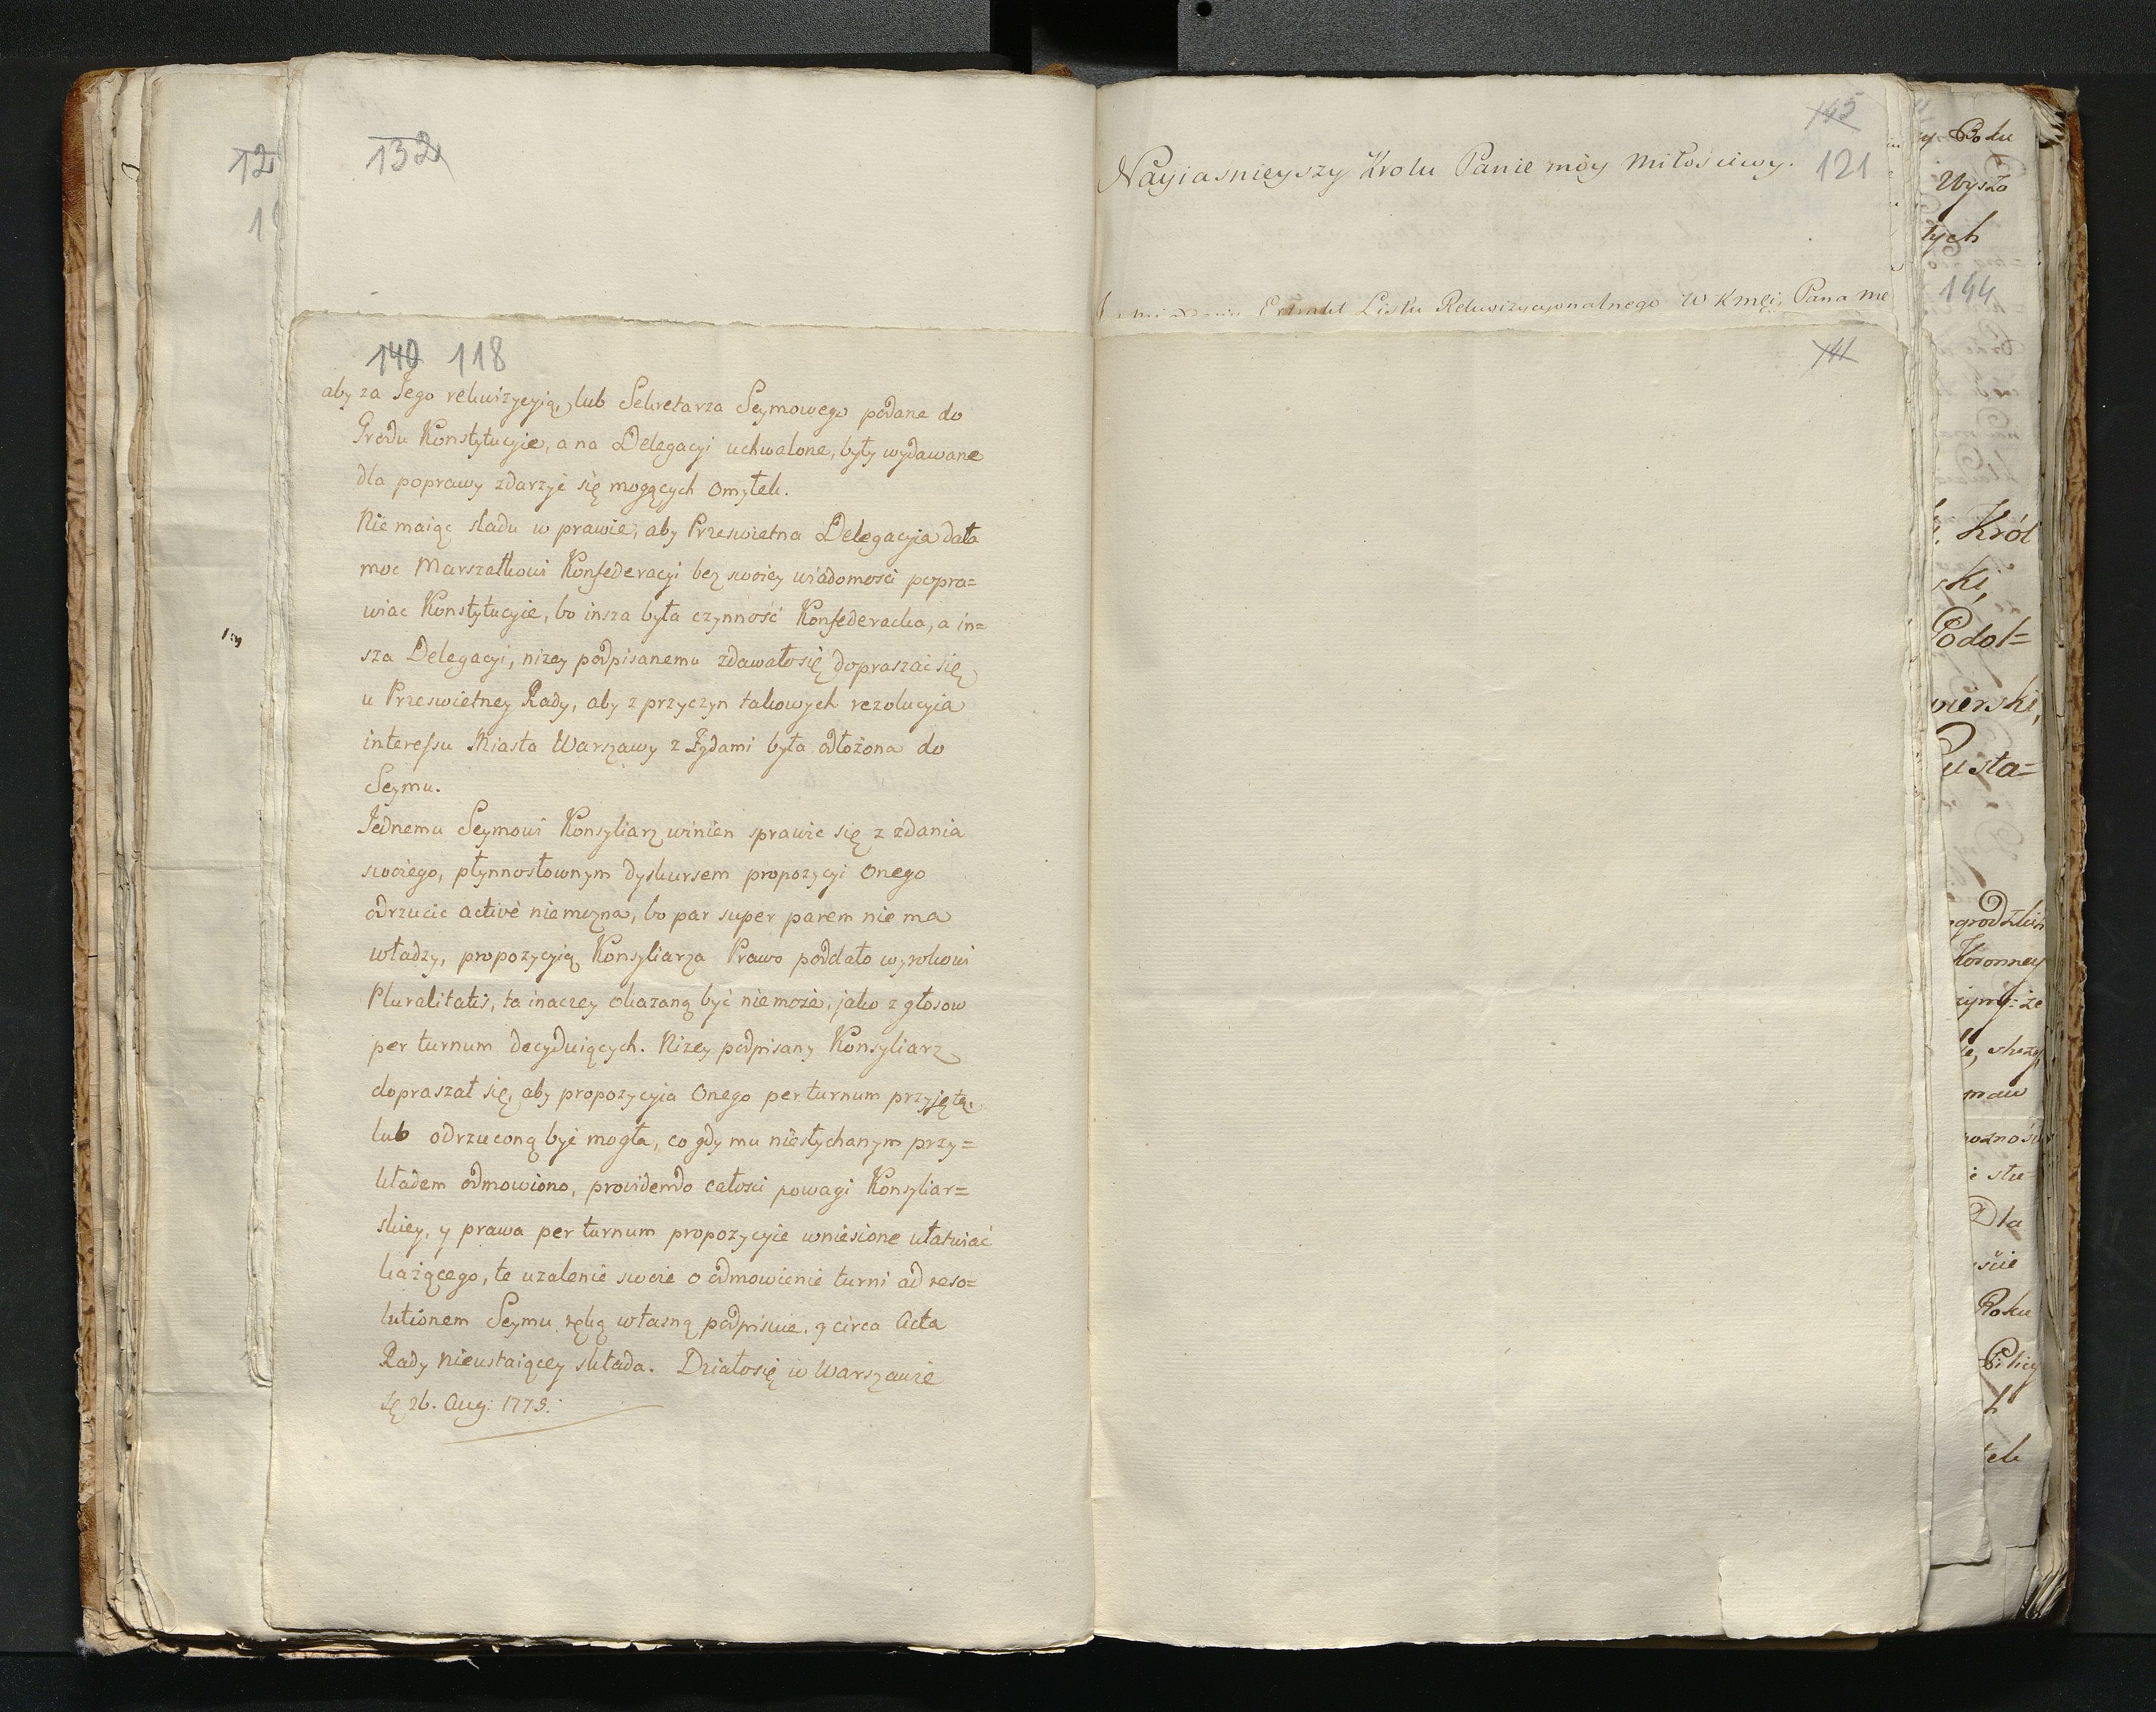 132
140 118
aby za Jego rekwizycyią, lub Sekretarza Seymowego podane do
Grodu Konstytucyie, a na Delegacyi uchwalone, były wydawane
dla poprawy zdarzyć się mogących omyłek.
Nie maiąc sladu w prawie, aby Przeswietna Delegacyia dała
moc Marszałkowi Konfederacyi bez swoiey wiadomosci popra=
wiac Konstytucyie, bo insza była czynność Konfederacka, a in=
sza Delegacyi, nizey podpisanemu zdawało się dopraszać się
u Przeswietney Rady, aby z przyczyn takowych rezolucyia
interessu Miasta Warszawy z Żydami była odłożona do
Seymu.
Jednemu Seymowi Konsyliarz winien sprawic się z zdania
swoiego, płynnosłownym dyskursem propozycyi Onego
odrzucic activè niemozna, bo par super parem nie ma
władzy, propozycyią Konsyliarza Prawo poddało wyrokowi
Pluralitatis, ta inaczey okazaną być nie może, jako z głosow
per turnum decyduiących. Nizey podpisany Konsyliarz
dopraszał się, aby propozycyia Onego per turnum przyjętą,
lub odrzuconą być mogła, co gdy mu niesłychanym przy=
kładem odmowiono, providendo całosci powagi Konsyliar=
skiey, y prawa per turnum propozycyie wniesione ułatwiać
każącego, te uzalenie swoie o odmowienie turni ad reso=
lutionem Seymu ręką własną podpisuie, y circa Acta
Rady Nieustaiącey składa. Działo się w Warszawie
26. Aug: 1775.
145
121
Nayiasnieyszy Krolu Panie móy Miłosciwy.
Extrakt Listu Rekwizycyonalnego W Kmći, Pana Me
141
12
y Boku
Wyszo
tych
144
Król
ski,
Podol=
nierski,
Pusta=
Koronney
Dla
Roku